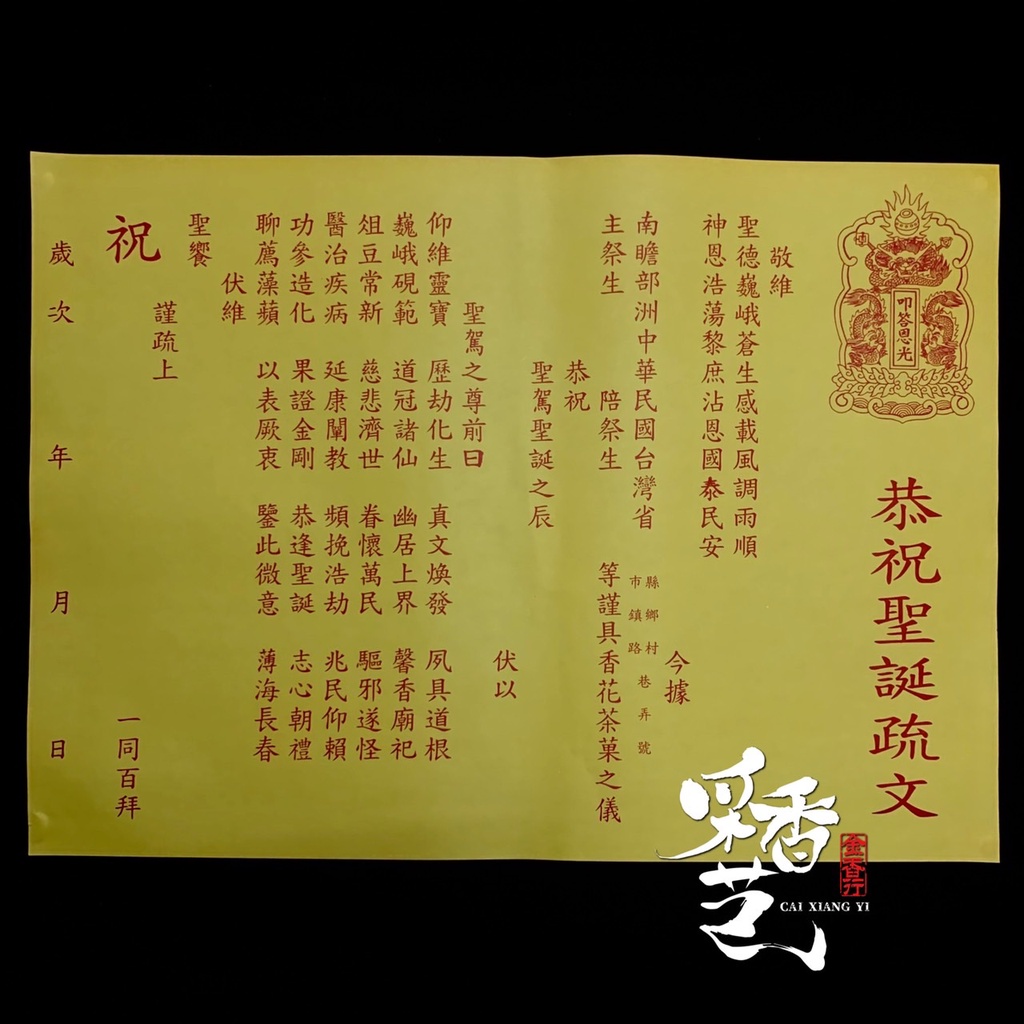 叩答恩光
恭祝聖誕疏文
敬維
聖德巍峨蒼生感載風調雨順
神恩浩蕩黎庶沾恩國泰民安
今據
南瞻部洲中華民國台灣省 縣市 鄉鎮 村路 巷 弄 號
主祭生 陪祭生 等謹具香花茶菓之儀
恭祝
聖駕聖誕之辰
伏以
聖駕之尊前曰
仰維靈寶 歷劫化生 真文煥發 夙具道根
巍峨硯範 道冠諸仙 幽居上界 馨香廟祀
俎豆常新 慈悲濟世 眷懷萬民 驅邪遂怪
醫治疾病 延康闡教 頻挽浩劫 兆民仰賴
功參造化 果證金剛 恭逢聖誕 志心朝禮
聊薦藻蘋 以表厥衷 鑒此微意 薄海長春
伏維
聖饗
謹疏上
祝 一同百拜
歲次 年 月 日
采香藝
金香行
CAI XIANG YI